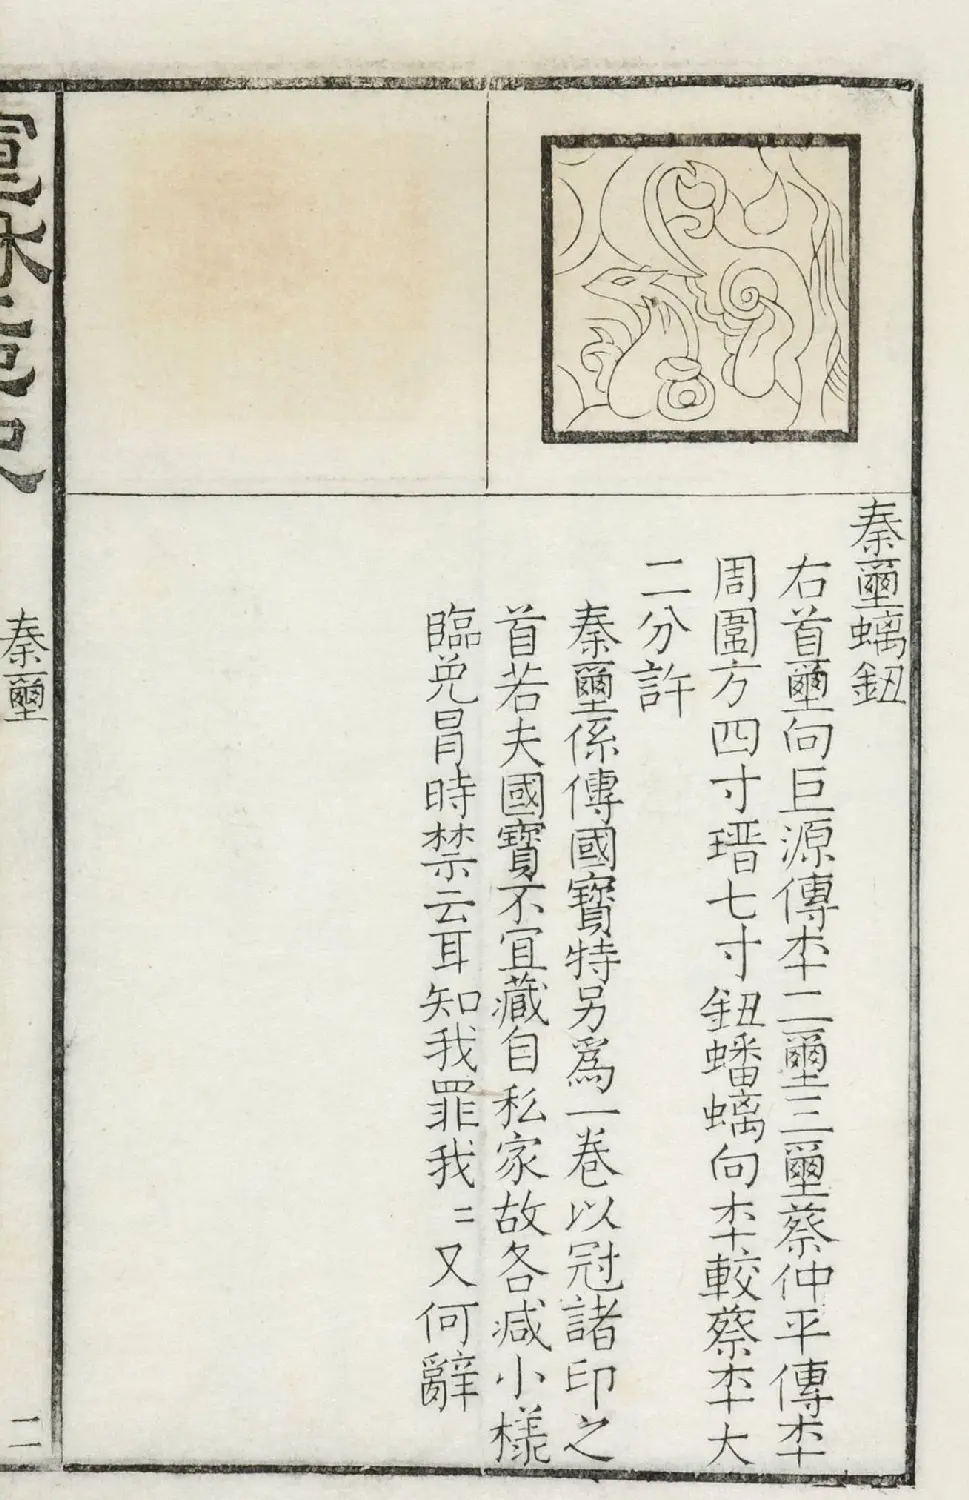 秦壐螭鈕
右首壐向巨源傳本二壐三壐蔡仲平傳本
周圍方四寸瑨七寸鈕蟠螭向本較蔡本大
二分許
秦壐係傳國寶特另爲一卷以冠諸印之
首若夫國寶不宜藏自私家故各減小樣
臨免冐時禁云耳知我罪我〻又何辭
秦壐
二